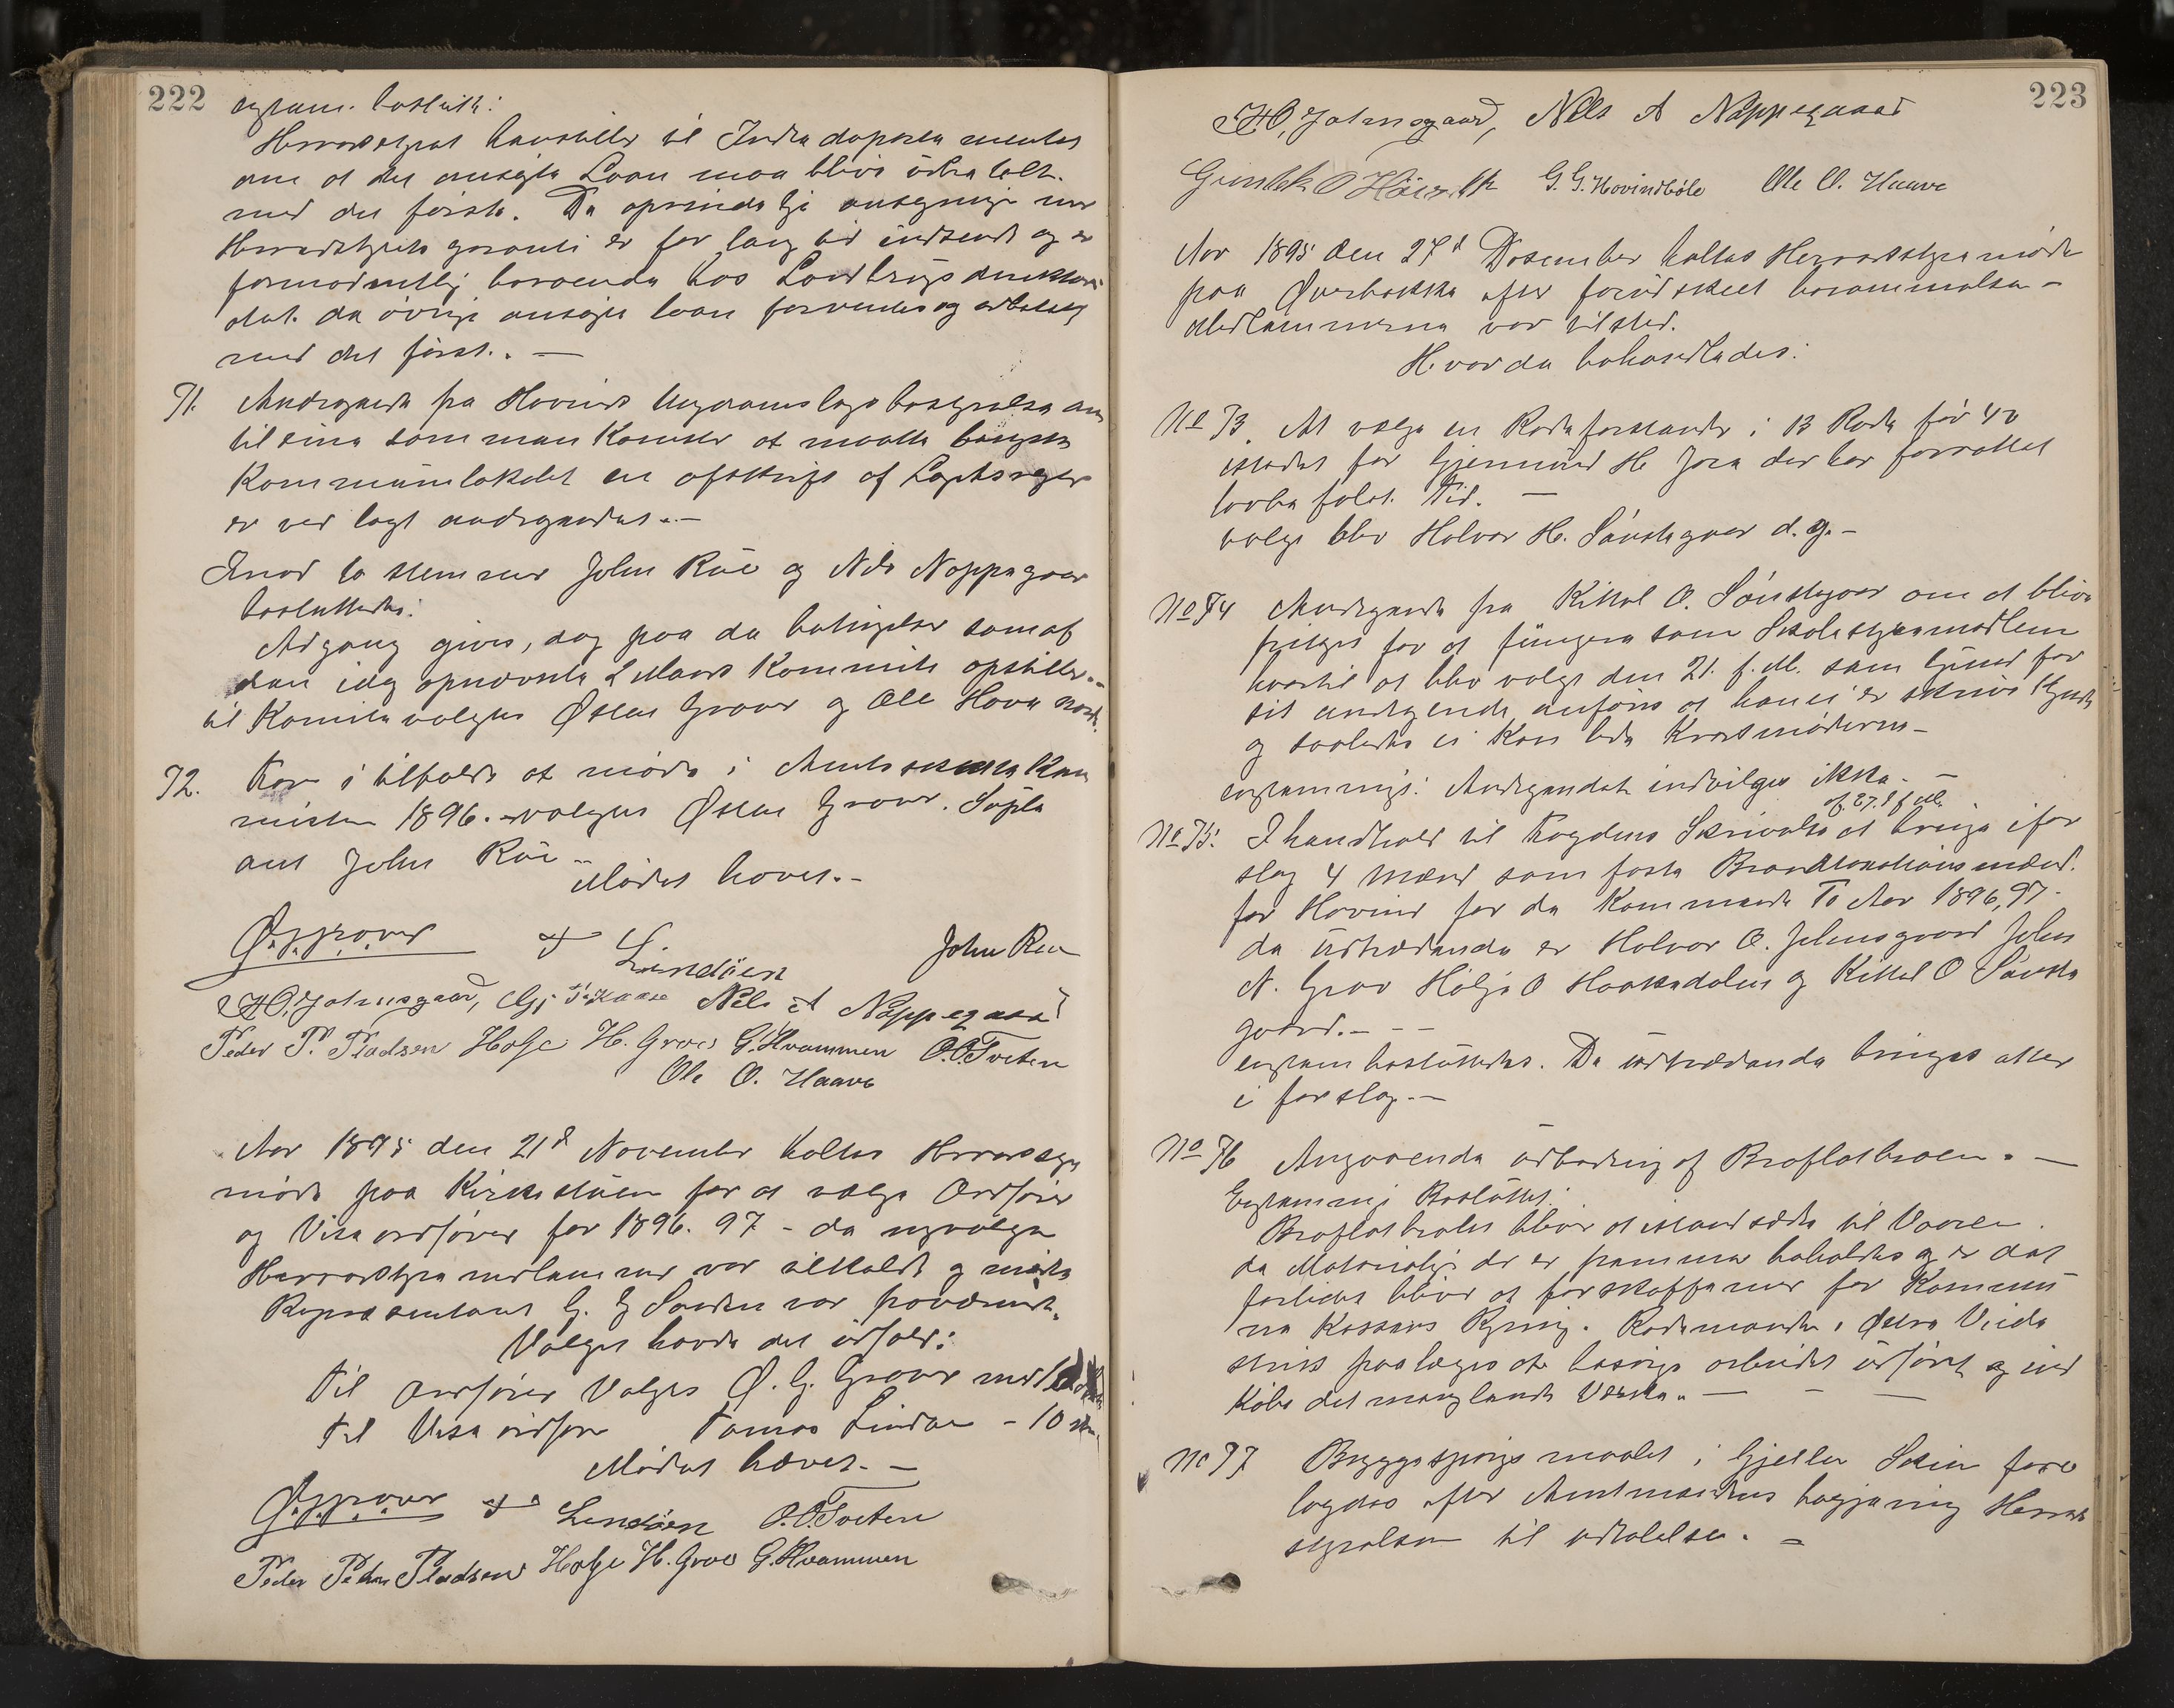 222
enstem. besluth:
Herredstyret henstiller til Indredepartementet
om at det ansøgte Laan maa blive udbetalt.
med det første. Da oprindelige ansøgninge med
Herredstyrets garanti er for lang tid indsendt og er
formodentlig beroende hos Landbrugsdirektøren
det øvrige ansøgte laan forventes og udbetalt
med det først. —
71. Andragende fra Hovind Ungdomslags bestyrelse om
til sine sammenkomster at maatte benytte
Kommunelokalet en afskrift af
er ved lagt andragendet. —
Imod to stemmer John Rue og Nils Noppegaar
besluttedes:
Adgang gives, dog paa de betingelser som af
den idag opnævnte 2 Mands Kommite opstilles. —
til Komite valgtes Østen Graver og Ole Hove nordr.
72. For i tilfælde at møde i Amts
1896. valgtes Østen Graver. Suple
ant John Rue —
Mødet hævet. —
Ø. G. Graver T L. Lindöen John Rue
H. O. Johnsgaard, Nils A Noppegaard
Peder P. Pladsen Holje H. Grave G. Kvammen O. O. Tveten
Ole O. Haave
Aar 1895 den 21d November holtes Herredsty
møde paa Kirkestuen for at vælge Ordfører
og Viseordfører for 1896. 97 – de nyvalgte
Herredstyremedlemmer var tilkaldt og mødte
Repræsentant G. G. Sanden var fraværende.
Valget havde det udfald:
Til Ordfører Valgtes Ø. G. Graver med
Til Vise ordfører Tomas Lindøe – 10 stm.
Mødet hævet. —
Ø. G. Graver T L. Lendöen O. O. Tveten
Peder Peder Pladsen Holje H. Grove G. Kvammen
223
H. O. Johnsgaard, Nils A Noppegaard
Gunlek O Höiseth G. G. Hovindböle Ole O. Haave
Aar 1895 den 27d Desember holtes Herredstyremøde
paa Øverbakka efter forudskeet berammelse —
Medlemmerne var tilsted.
Hvor da behandledes:
No 73. At vælge en Rodeforstander i 13 Rode for 40
istedet for Gjermund H. Jore der har forrettet
lovbefalet Tid. —
valgt blev Halvor H. Sönstegaar d.y. —
No 74 Andragende fra Kittel O. Sönstegaar om at blive
fritaget for at fungere som Skolestyremedlem
hvortil at blev valgt den 21. f. M. som Grund for
sit andragende anføres at han ei er skrive kyndig
og saaledes ei kan lede Kredsmøderne —
enstemmigt: Andragendet indvilges ikke. —
No 75. I henhold til Fogdens Skrivelse af 27. d f. M. at bringe i for
slag 4 Mænd som faste Brandtakstionsmænd.
for Hovind for de kommende To Aar 1896, 97.
de Udtrædende er Halvor O. Johnsgaard John
N. Grov Holje O Haakedalen og Kittel O Sönste
gaard. — —
enstem besluttedes. De udtrædende bringes atter
i forslag. —
No 76 Angaaende udbedring af Broflotbroen. —
Enstemmig Besluttet:
Broflotbroen bliver at istandsætte til Vaaren.
de Materialier der er fremme beholdes og er det
forlidet bliver at forskaffe mer for Kommu
ne Kassens Regning. Rodemanden i Østre Vida
strix paalægges at besørge arbeidet udført og ind
købe det manglende Værke. — — —
No 77 Bryggespörgsmaalet i Gjellen Skien fore
lagdes efter Amtmandens begjæring Herreds
styrelsen til udtalelse. —